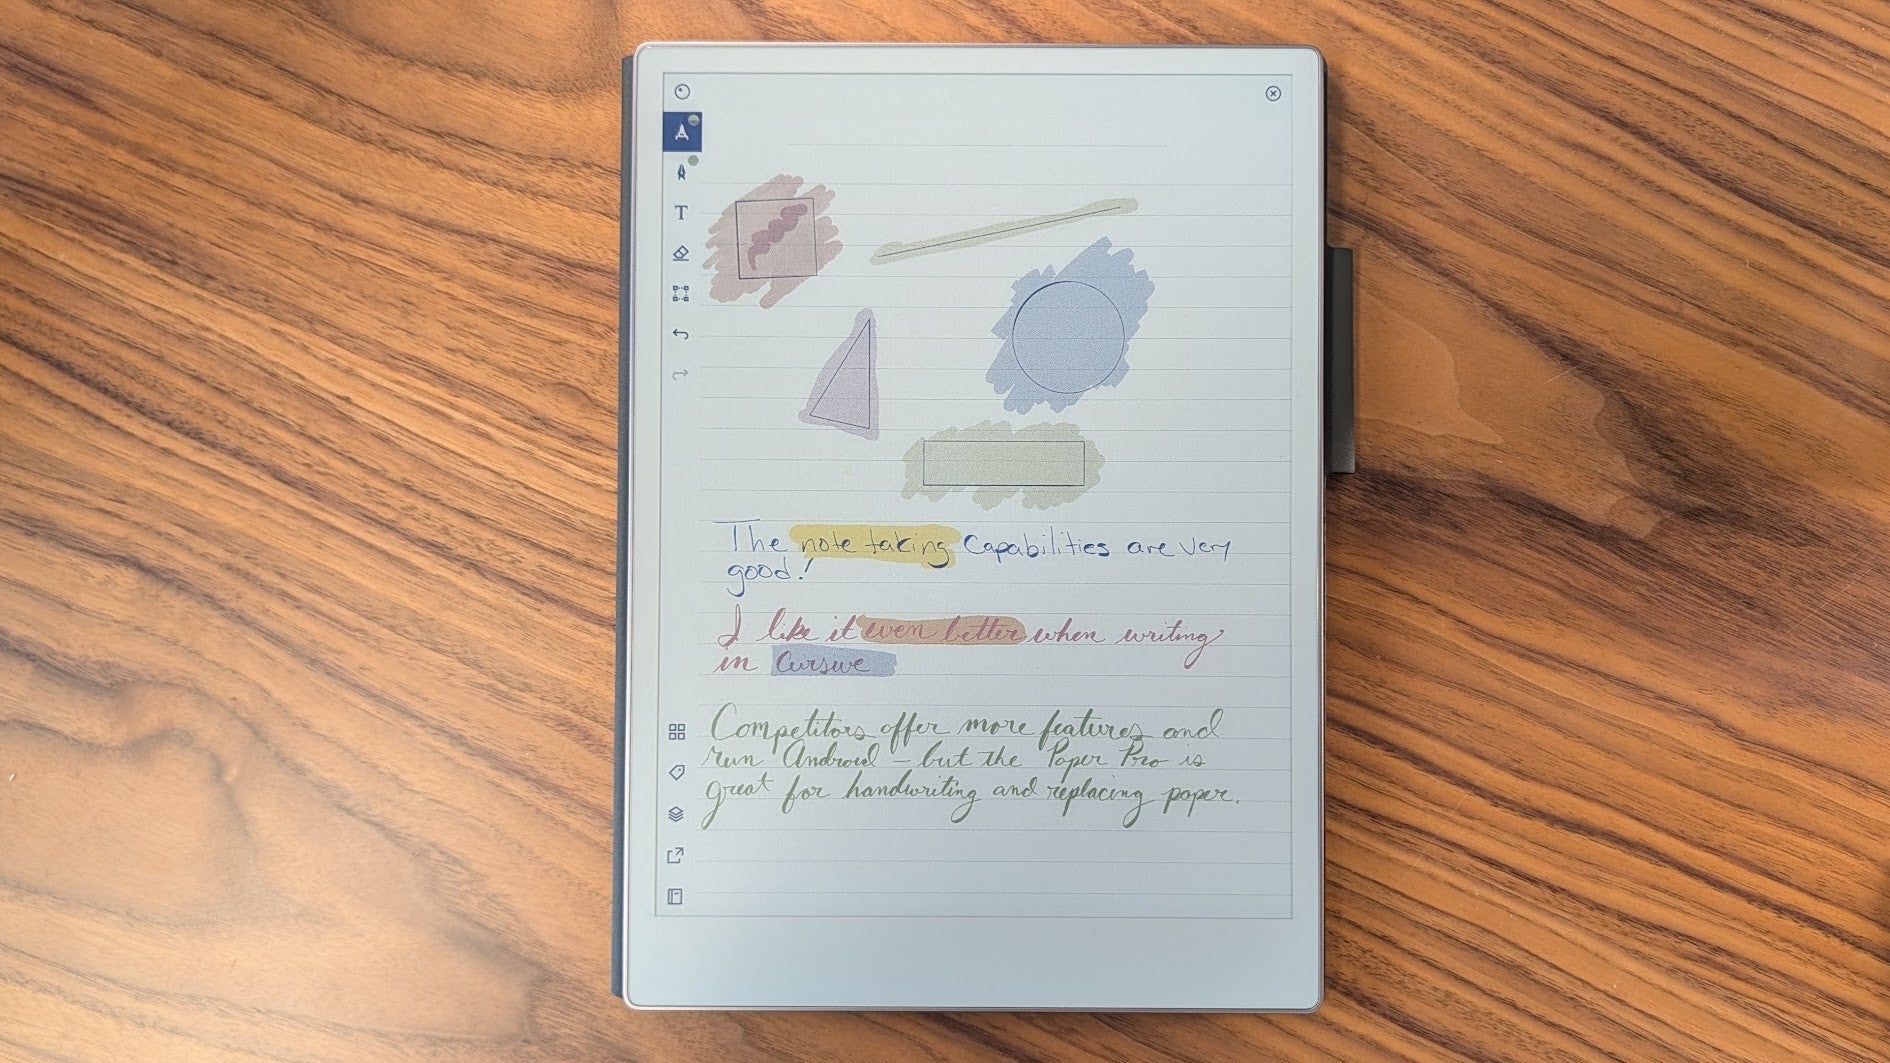 T
The note taking Capabilities are very
good!
I like it even better when writing
in Cursive
Competitors offer more features and
run Android – but the Paper Pro is
great for handwriting and replacing paper.